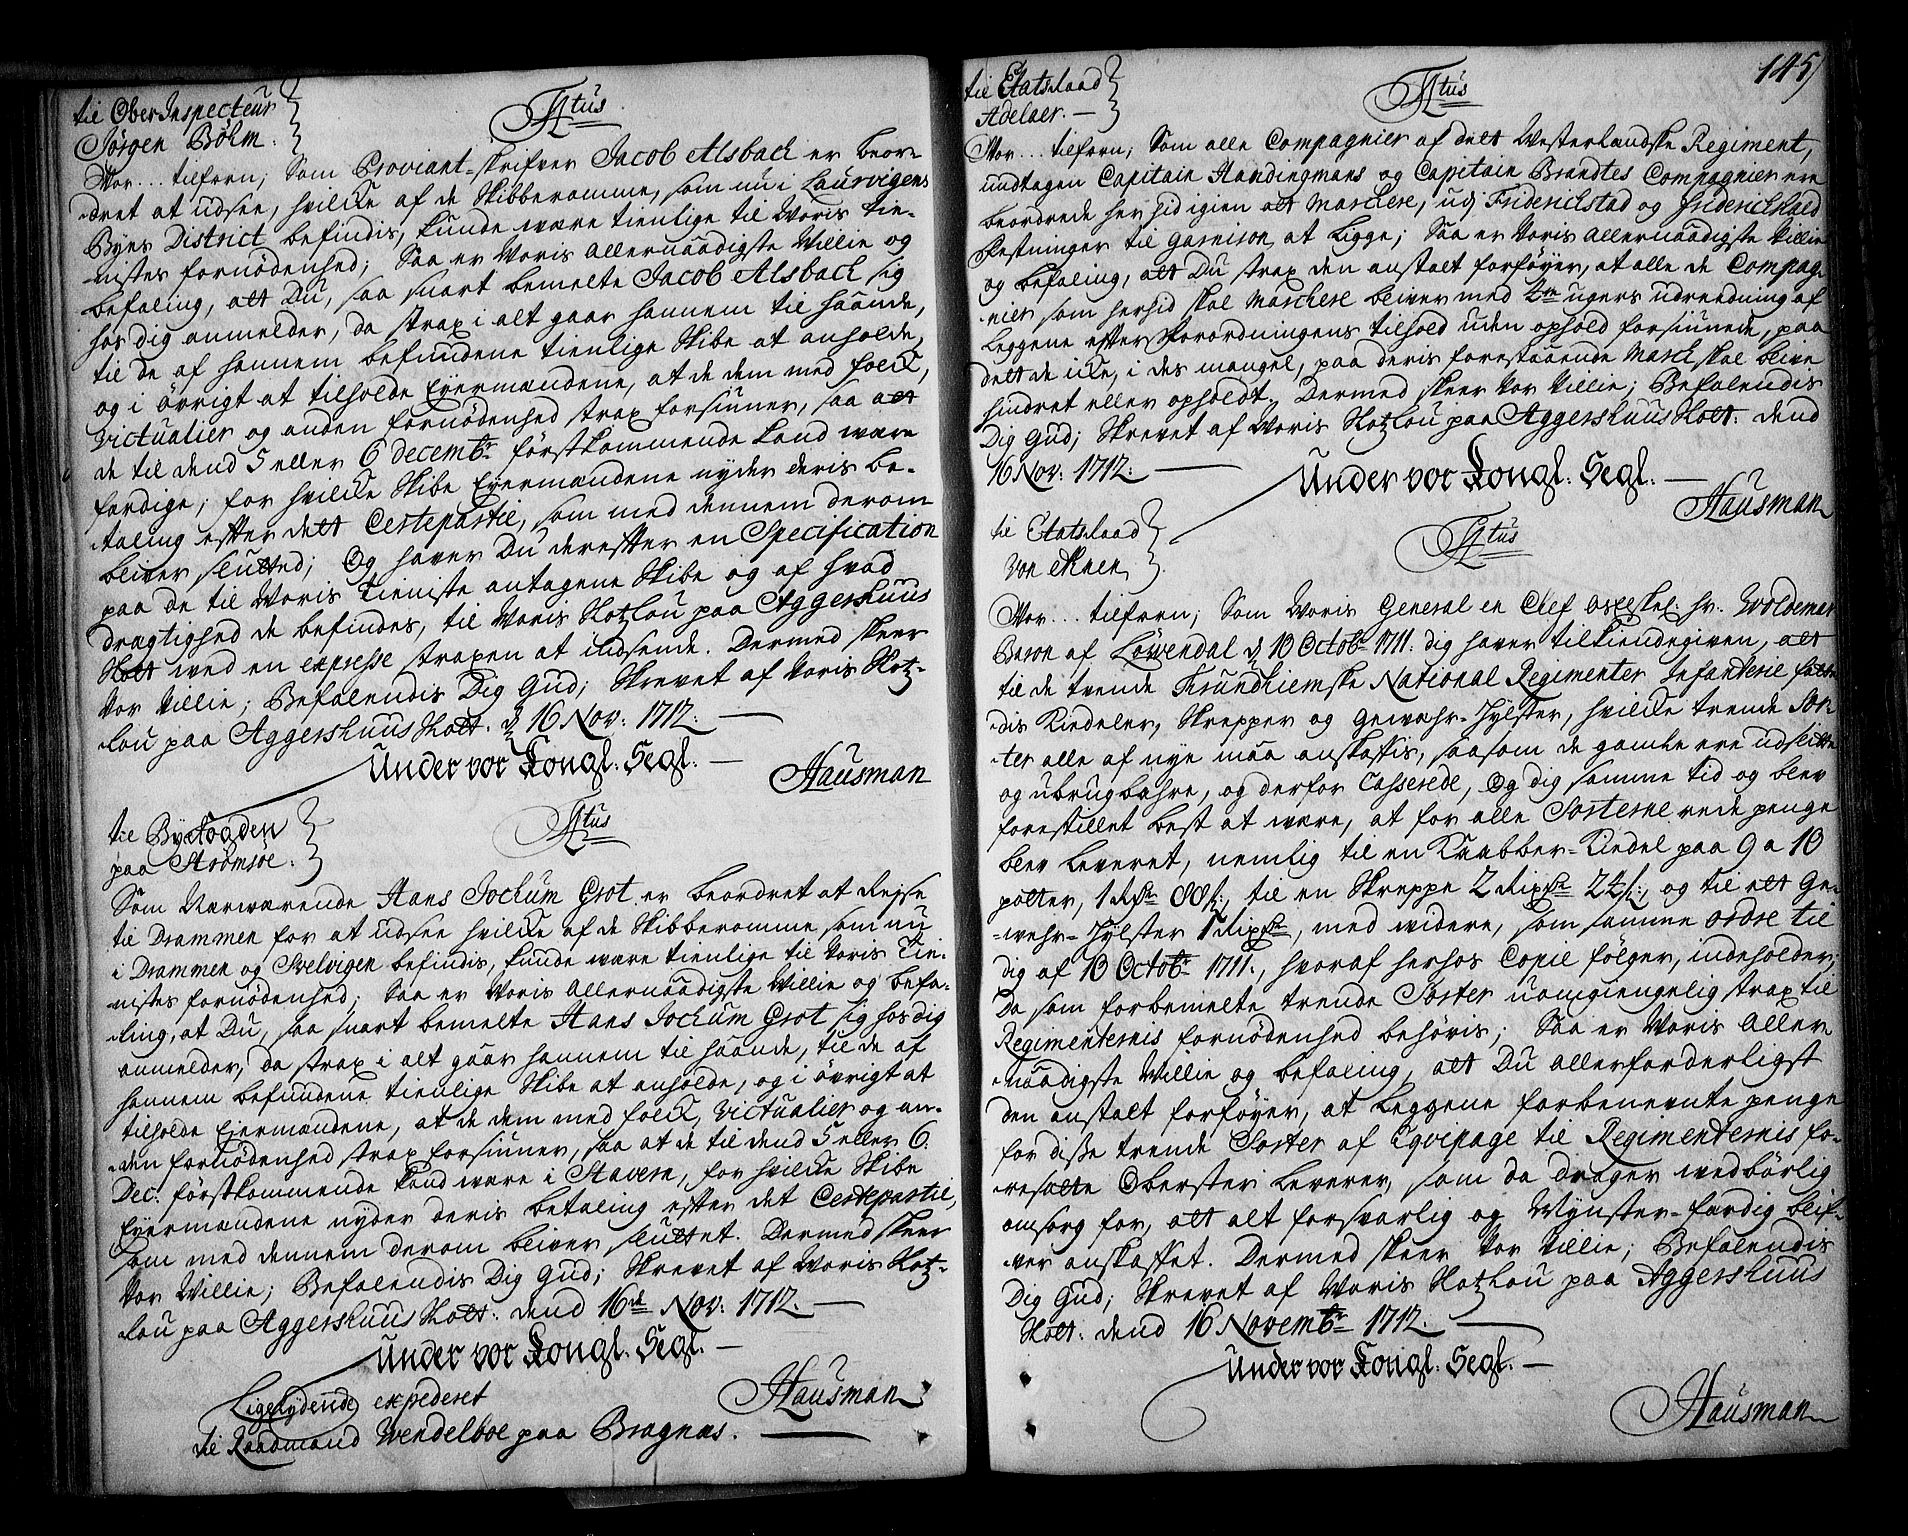 til Ober Inspecteur
Jørgen Bölm.
Titus
Vor... tilforn; Som Proviant-skrifver Jacob Alsbach er beor-
dret at udsee, hvilcke af de Skibberomme, som nu i Laurvigens
Byes District befindis, kunde være tienlige til Voris Tie-
nistes fornödenhed; Saa er Voris Allernaadigste Villie og
befaling, att Du, saa snart bemelte Jacob Alsbach sig
hos dig anmelder, da strax i alt gaar hannem til haande,
til de af hannem befundene tienlige Skibe at anholde,
og i övrigt at tilholde Eyermændene, at de dem med folck,
Victualier og anden fornödenhed strax forsiuner, saa att
de til dend 5 eller 6 decembr förstkommende kand være
færdige; for hvilcke Skibe Eyermændene nyder deris be-
taling efter dett Certepartie, som med dennem derom
bliver slutted; Og haver Du derefter en Specification
paa de til Voris Tieniste antagene Skibe og af hvad
drægtighed de befindes, til Voris Slotzlou paa Aggershuus
Slott med en expresse straxen at indsende. Dermed skeer
Vor Villie; Befalendis Dig Gud; Skrevet af Voris Slotz-
lou paa Aggershuus Slott. d 16 Nov: 1712.
Under vor Kongl. Segl.
Hausman
til Byefogden
paa Strømsöe.
Titus
Som Nærværende Hans Jochum Grot er beordret at Rejse
til Drammen for at udsee hvilcke af de Skibberomme, som nu
i Drammen og Svelvigen befindis, kunde være tienlige til Voris Tie-
nistes fornödenhed; Saa er Voris Allernaadigste Villie og befa-
ling, at Du, saa snart bemelte Hans Jochum Grot sig hos dig
anmelder, da strax i alt gaar hannem til haande, til de af
hannem befundene tienlige Skibe at anholde, og i övrigt at
tilholde Ejermændene, at de dem med folck, Victualier og an-
den fornödenhed strax forsiuner, saa at de til dend 5 eller 6.
Dec: förstkommende kand være i Stavern, for hvilcke Skibe
Eyermændene nyder deris betaling efter det Certepartie,
som med dennem derom bliver sluttet. Dermed skeer
Vor Villie; Befalendis Dig Gud; Skrevet af Voris Slotz-
lou paa Aggershuus Slott. dend 16de Nov: 1712.
Under vor Kongl. Segl.
Hausman
Ligelydende expederet
til Raadmand Wendelboe paa Bragnæs.
145
til Etatsraad
Adelaer.
Titus
Vor... tilforn; Som alle Compagnier af dett Westerlandske Regiment,
undtagen Capitain Handingmans og Capitain Brandtes Compagnier ere
beordrede her hid igien att Marchere, udj Friderichstad og Friderichshald
Festninger til Garnison at ligge; Saa er Voris Allernaadigste Villie
og befaling, att Du strax den anstalt forföyer, at alle de Compag-
nier som herhid skal Marchere bliver med 2de ugers udreedning af
Leggene efter Forordningens tilhold uden ophold forsiunede, paa
dett de icke, i des mangel, paa deris forestaaende March skal blive
hindret eller opholdt. Dermed skeer Vor Villie; Befalendis
Dig Gud; Skrevet af Voris Slotzlou paa Aggershuus Slott. dend
16 Nov: 1712.
Under vor Kongl. Segl.
Hausman
til Etatsraad
Von Ahnen
Titus
Vor... tilforn; Som Voris General en Chef hr. Woldemar
Baron af Löwendal d 10 Octobr 1711. dig haver tilkiendegiven, att
til de tvende Trundhiemske National Regimenter Infanterie
dis Kiedeler, Skrepper og Gewæhr-Hylster, hvilcke trende Sor-
ter alle af nye maa anskaffis, saasom de gamle ere udslitte
og ubrugbahre, og derfor Casserede, Og dig samme tid og blev
forestillet best at være, at for alle Sorterne rede penge
blev leveret, nemlig til en Knabber-Kiedel paa 9 a 10
potter, 1 Rdr 88 s, til en Skreppe 2 Rixdr 22 s, og til ett Ge-
wehr-Hylster 1 Rixdr, med widere, som samme ordre til
dig af 10 Octobr 1711, hvoraf herhos Copie fölger, indeholder;
Da som forbemelte trende Sorter uomgiengelig strax til
Regimenternis fornödenhed behöris; Saa er Voris Aller-
naadigste Villie og befaling, att Du allerforderligst
den anstalt forföyer, at Leggene forbenevnte penge
for disse trende Sorter af Eqvipage til Regimenternis fo-
resatte Oberster leverer, som da drager vedbörlig
omsorg for, att alt forsvarlig og Mynster-færdig blif-
ver anskaffet. Dermed skeer Vor Villie; Befalendis
Dig Gud; Skrevet af Voris Slotzlou paa Aggershuus
Slott. dend 16 Novembr 1712.
Under vor Kongl. Segl.
Hausman